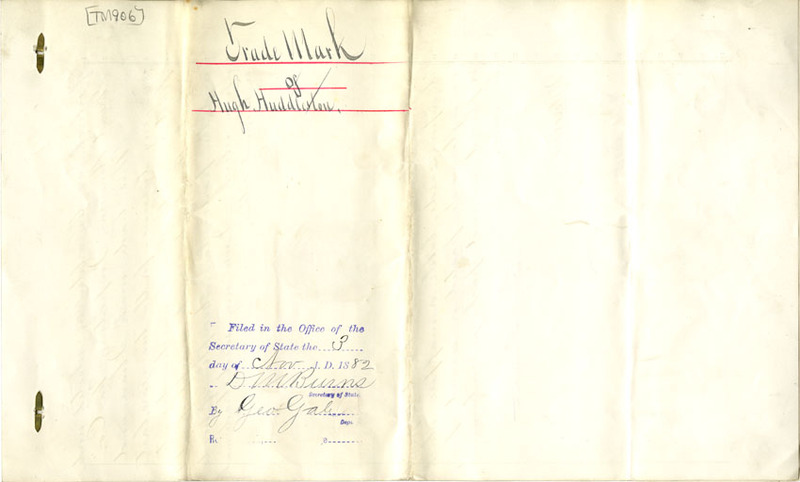 [TM906]
Trade Mark
of
Hugh Huddleston,
Filed in the Office of the
Secretary of State the 3
day of Nov A. D. 1882
D M Burns
Secretary of State.
By Geo.
Dep.